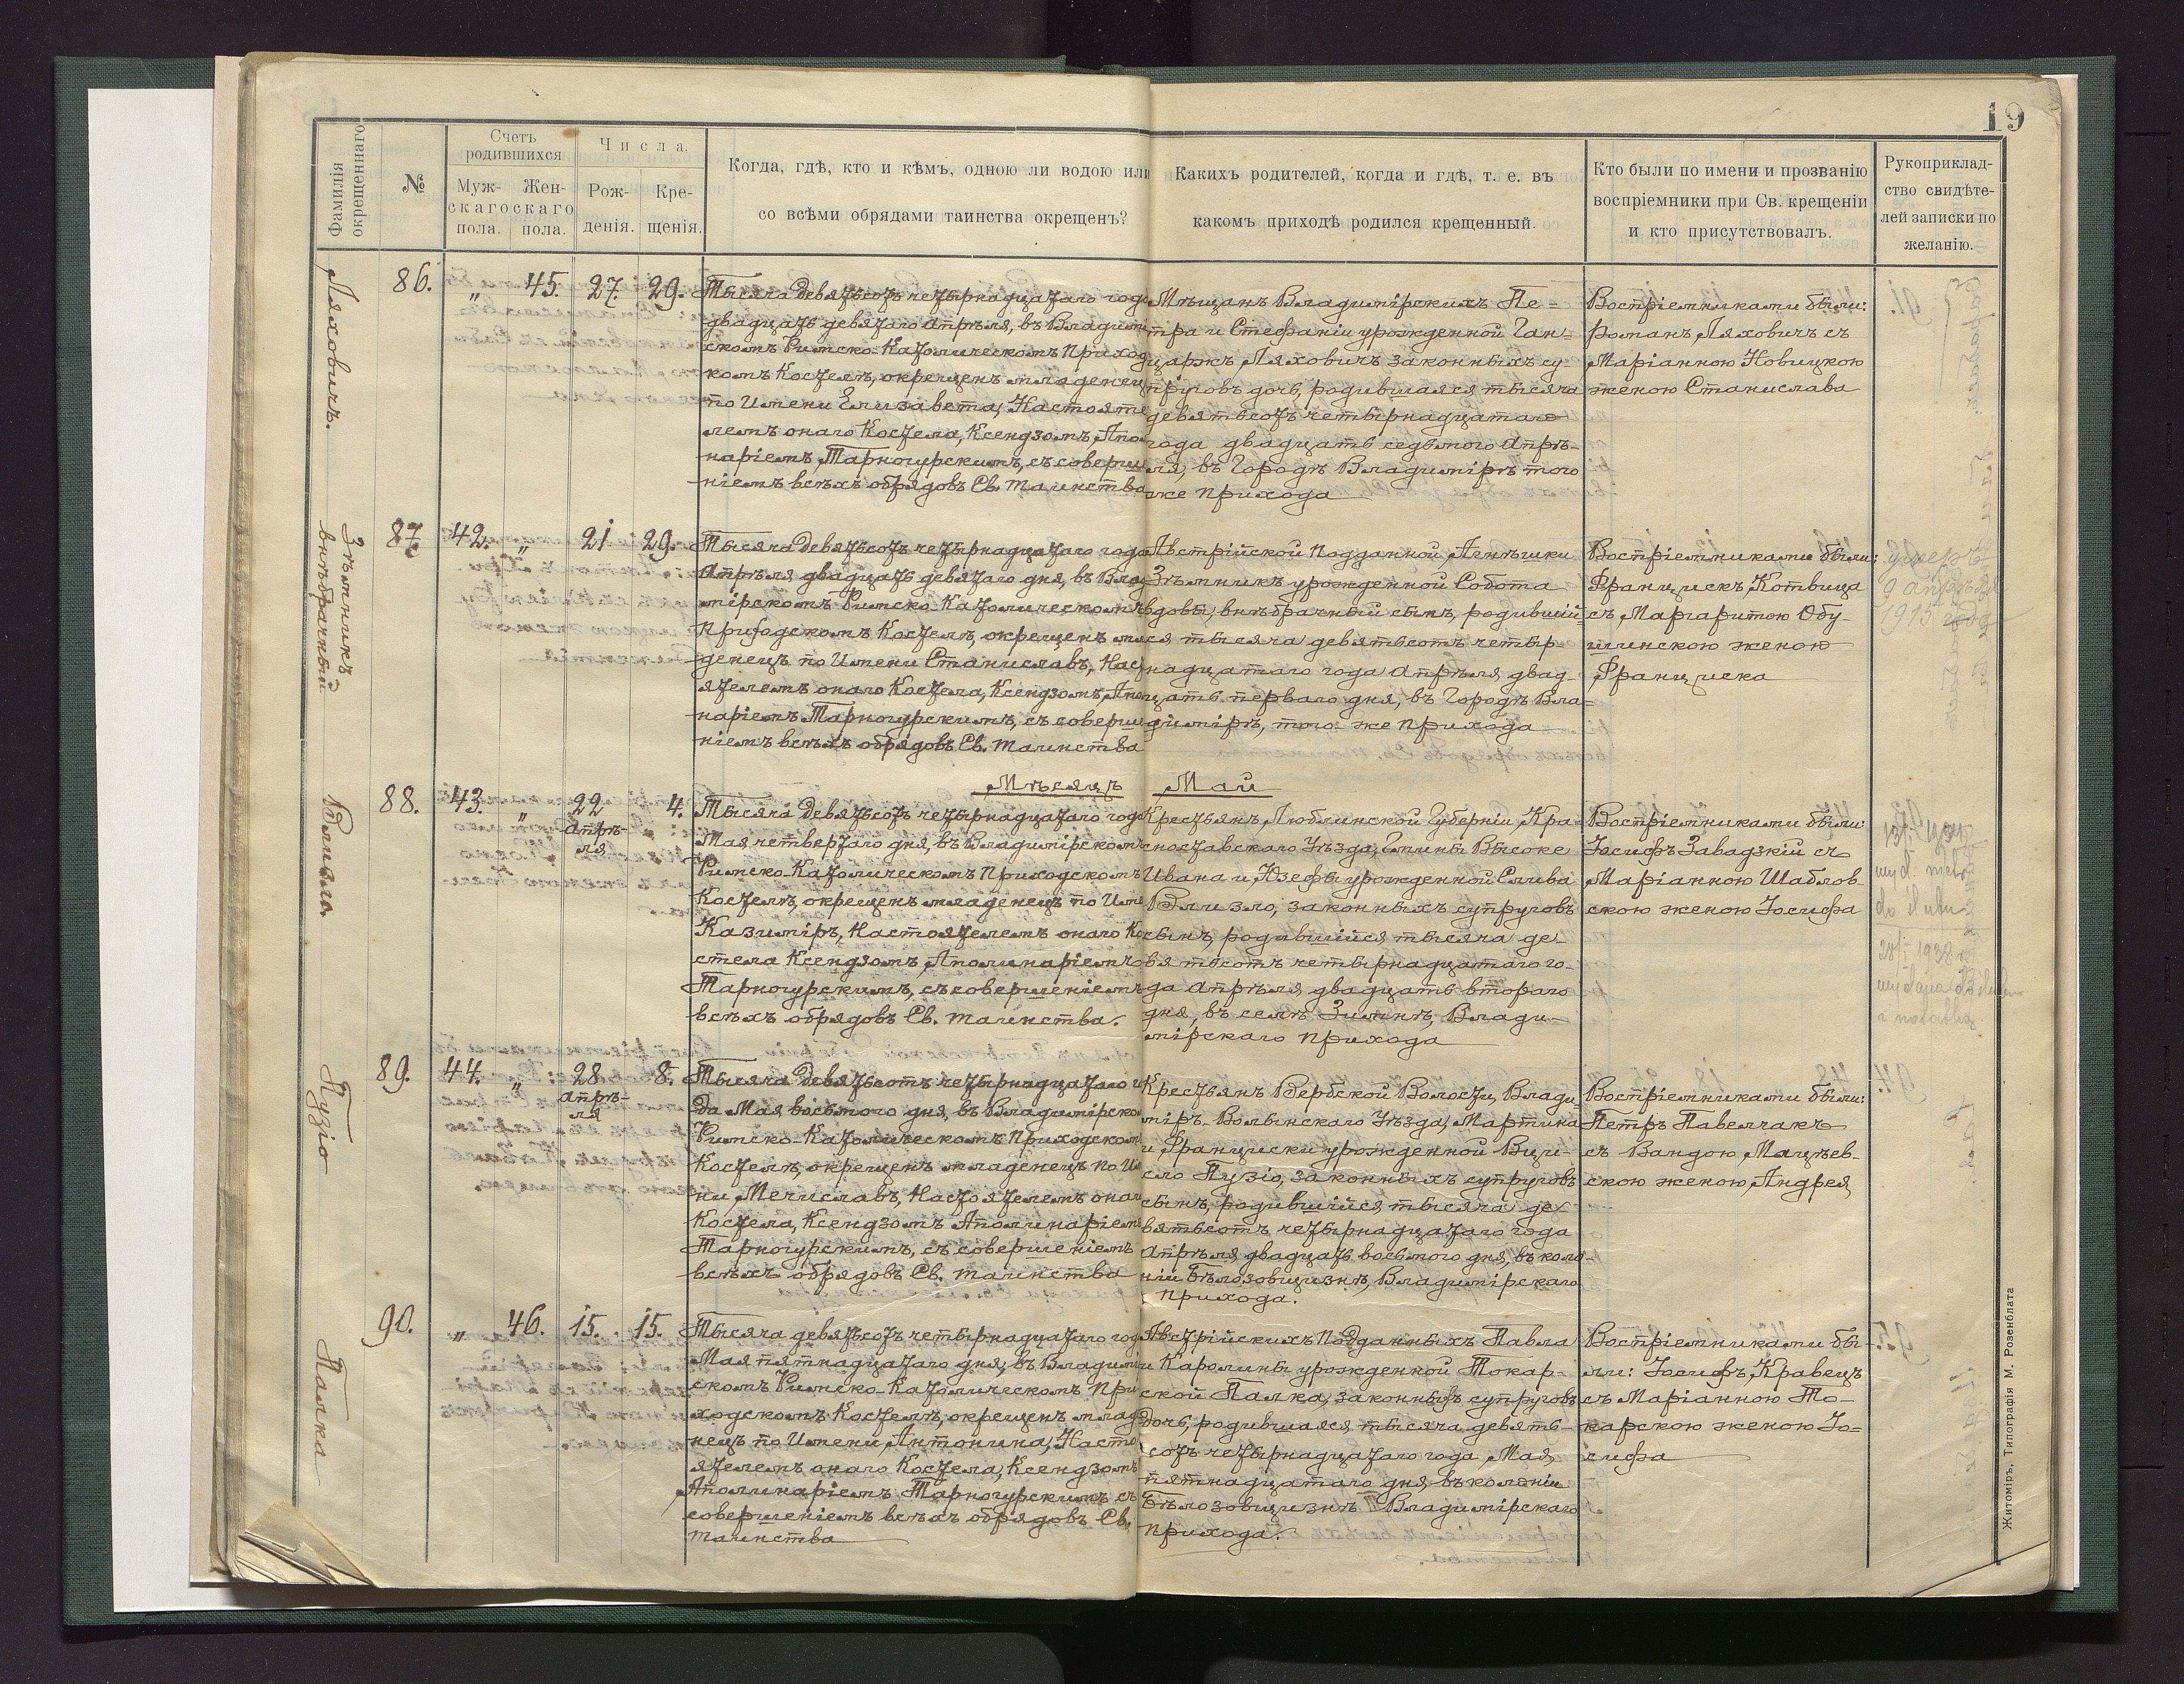 19
Фамилія окрещеннаго
№
Счетъ родившихся
Мужскаго пола.
Женскаго пола.
Числа.
Рожденія.
Крещенія.
Когда, гдѣ, кто и кѣмъ, одною ли водою или
со всѣми обрядами таинства окрещенъ?
Какихъ родителей, когда и гдѣ, т. е. въ
какомъ приходѣ родился крещенный.
Кто были по имени и прозванію
воспріемники при Св. крещеніи
и кто присутствовалъ.
Рукоприклад-
ство свидѣте-
лей записки по
желанію.
Ляховичъ.
86.
" 45. 27. 29.
Тысяча девятьсотъ четырнадцатаго года
двадцать девятаго Апрѣля, въ Владимі
скомъ Римско-Католическомъ Приход
комъ Костелѣ, окрещенъ младенец
по Имени Елизавета, Настояте
лемъ онаго Костела, Ксендзомъ, Апол
наріемъ Тарногурскимъ, съ соверше
ніемъ всѣхъ обрядовъ Св. таинства
Мѣщанъ Владимірскихъ Пе-
тра и Стефаніи урожденной Ган-
царжъ Ляховичъ законныхъ су-
пруговъ дочь, родившаяся тысяча
девятьсотъ четырнадцатаго
года двадцать седьмого Апрѣ-
ля, въ Городѣ Владимірѣ того
же прихода
Воспріемниками были:
Романъ Ляховичъ съ
Маріанною Новицкою
женою Станислава
Зѣмникъ
внѣбрачный
87.
42. " 21 29.
Тысяча девятьсотъ четырнадцатаго года
Апрѣля двадцать девятаго дня, въ Влад
мірскомъ Римско-Католическомъ
Приходскомъ Костелѣ, окрещенъ мла
денецъ по Имени Станиславъ, Наст
ятелемъ онаго Костела, Ксендзомъ, Апол
наріемъ Тарногурскимъ, съ соверше
ніемъ всѣхъ обрядовъ Св. таинства
Австрійской Подданной, Агнѣшки
Зѣмникъ урожденной Собота
вдовы, внѣбрачный сынъ, родившій
ся тысяча девятьсотъ четыр-
надцатаго года Апрѣля двад-
цать перваго дня, въ Городѣ Вла-
димірѣ, того-же прихода
Воспріемниками были:
Францискъ Котвица
съ Маргаритою Обу-
шинскою женою
Франциска
умеръ
9 апрѣля
1915 года
Мѣсяцъ Май
88.
43. " 22 Апрѣ-
ля 4.
Тысяча девятьсотъ четырнадцатаго года
Мая четвертаго дня, въ Владимірскомъ
Римско-Католическомъ Приходскомъ
Костелѣ, окрещенъ младенецъ по Име
Казиміръ, Настоятелемъ онаго Ко
стела Ксендзомъ, Аполинаріемъ
Тарногурскимъ, съ совершеніемъ
всѣхъ обрядовъ Св. таинства.
Крестьянъ, Люблинской Губерніи, Кра-
сноставскаго Уѣзда, Гмины Высоке
Ивана и Юзефы урожденной Слива
законныхъ супруговъ
сынъ, родившійся тысяча де-
вятьсотъ четырнадцатаго го-
да Апрѣля двадцать второго
дня, въ селѣ Зимнѣ, Влади-
мірскаго прихода
Воспріемниками были:
Іосифъ Завадзкій съ
Маріанною Шаблов-
скою женою Іосифа
Пузіо
89.
44. " 28 Апрѣ-
ля 8.
Тысяча девятьсотъ четырнадцатаго го
да Мая восьмого дня, въ Владимірско
Римско-Католическомъ Приходском
Костелѣ, окрещенъ младенецъ по Им
ни, Мечиславъ, Настоятелемъ онаго
Костела, Ксендзомъ Аполинаріем
Тарногурскимъ, съ совершеніемъ
всѣхъ обрядовъ Св. таинства
Крестьянъ Вербской Волости, Влади-
міръ-Волынскаго Уѣзда, Мартина
и Франциски урожденной Вци-
сло Пузіо, законныхъ супруговъ
сынъ, родившійся тысяча де-
вятьсотъ четырнадцатаго года
Апрѣля двадцать восьмого дня, въ коло-
ніи Бѣлозовщизнѣ, Владимірскаго
прихода.
Воспріемниками были:
Петръ Павелчакъ
съ Вандою Мацѣев-
скою женою Андрея
Палка
90.
" 46. 15. 15.
Тысяча девятьсотъ четырнадцатаго год
Мая пятнадцатаго дня, въ Владимі
скомъ Римско-Католическомъ При
ходскомъ Костелѣ, окрещенъ млад
нецъ по Имени Антонина, Насто
ятелемъ онаго Костела, Ксендзомъ
Аполинаріемъ Тарногурскимъ съ
совершеніемъ всѣхъ обрядовъ Св.
таинства
Австрійскихъ Подданныхъ Павла
и Каролины урожденной Токар-
ской Палка, законныхъ супруговъ
дочь, родившаяся тысяча девять-
сотъ четырнадцатаго года Мая
пятнадцатаго дня, въ колоніи
Бѣлозовщизнѣ Владимірскаго
прихода.
Воспріемниками бы-
ли: Іосифъ Кравецъ
съ Маріанною То-
карскою женою Іо-
сифа
Житоміръ, Типографія М. Розенблата